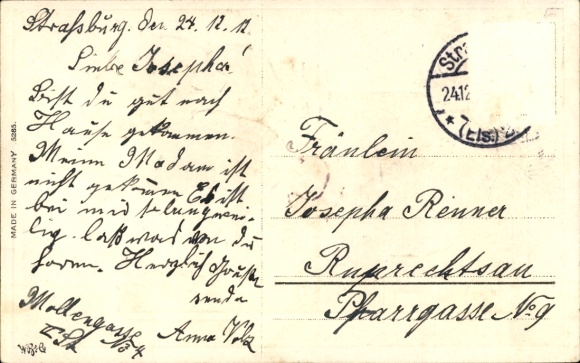 Straßburg. den 24.12.12
Liebe Josepha!
Bist du gut nach
Hause gekommen.
Meine Madam ist
nicht gekommen Es ist
bei mir so langwei-
lig laß was von du
hören. Herzlich Grüße
sende
Anna Volz
Mollengasse No 4
II St
MADE IN GERMANY 5285.
W.B.G
Stra
24.12
* (Els.)
Fräulein
Josepha Renner
Ruprechtsau
Pfarrgasse No 9